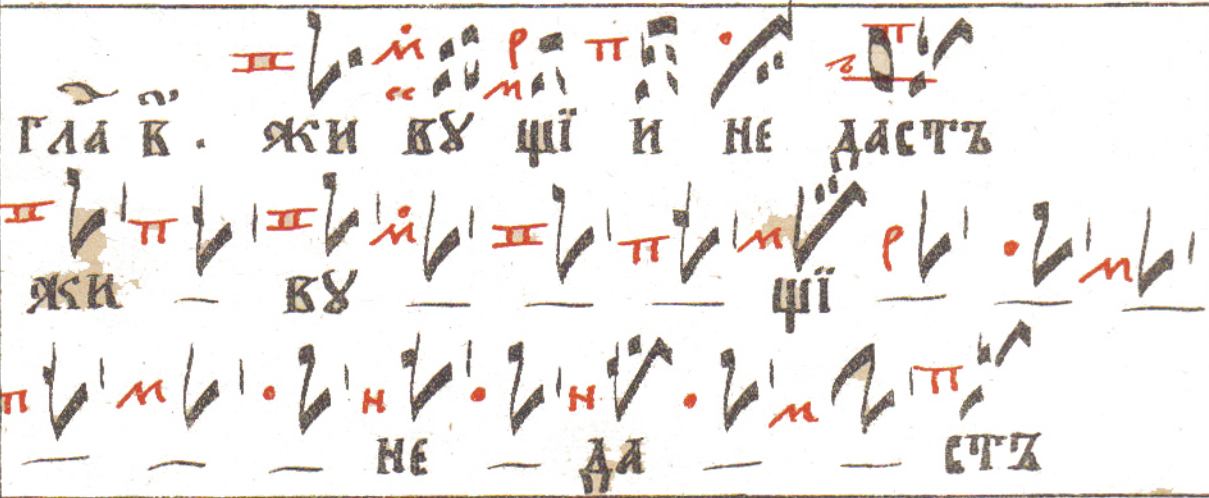 гла в҃ . жи ву щї и не дастъ
жи ву щї
не да стъ